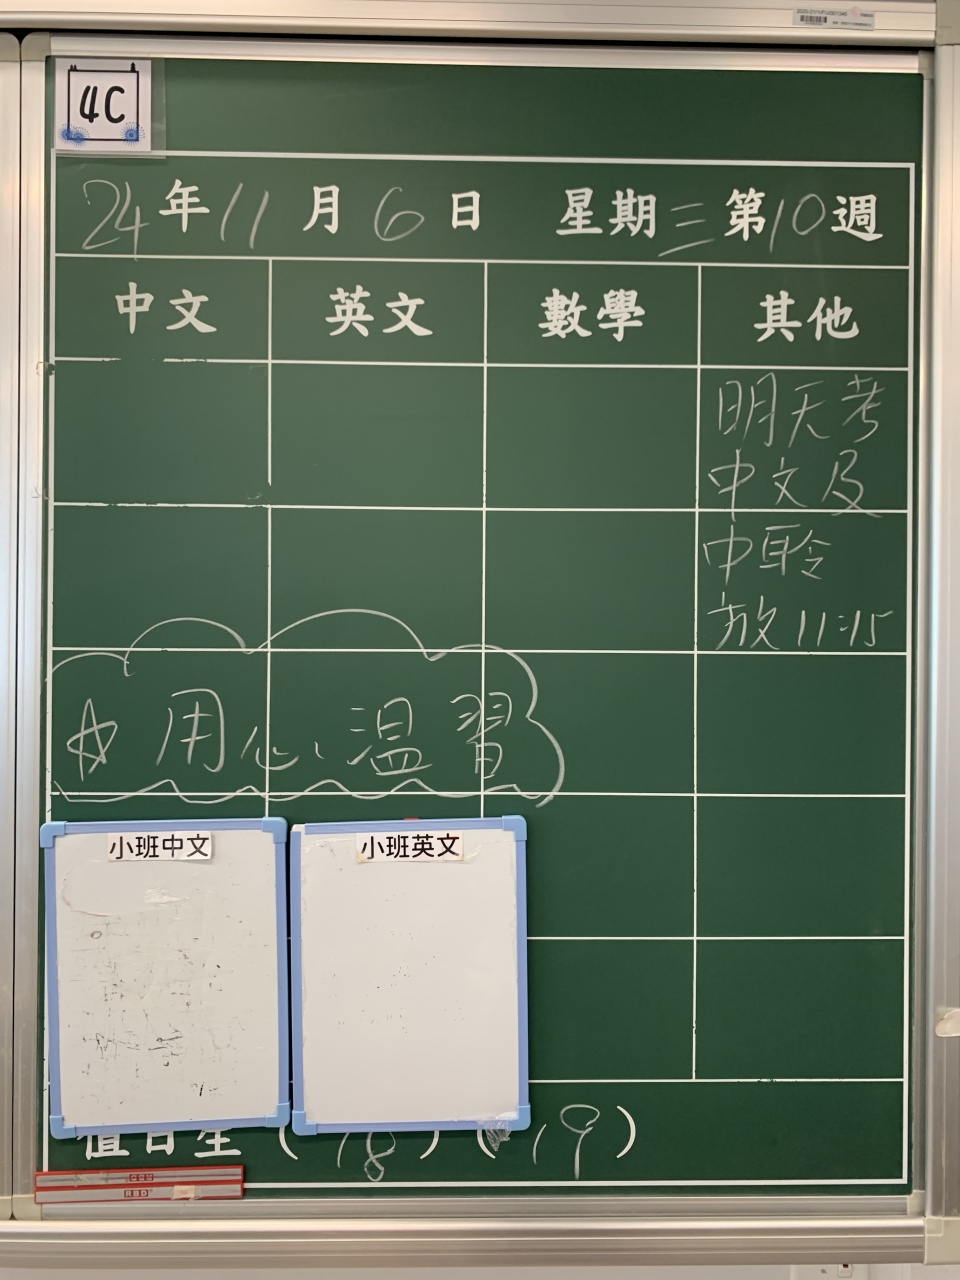 4C
24年11月6日 星期三第10週
中文 英文 數學 其他
明天考
中文及
中聆
放11:15
☆用心温習
小班中文 小班英文
值日生(18)(19)